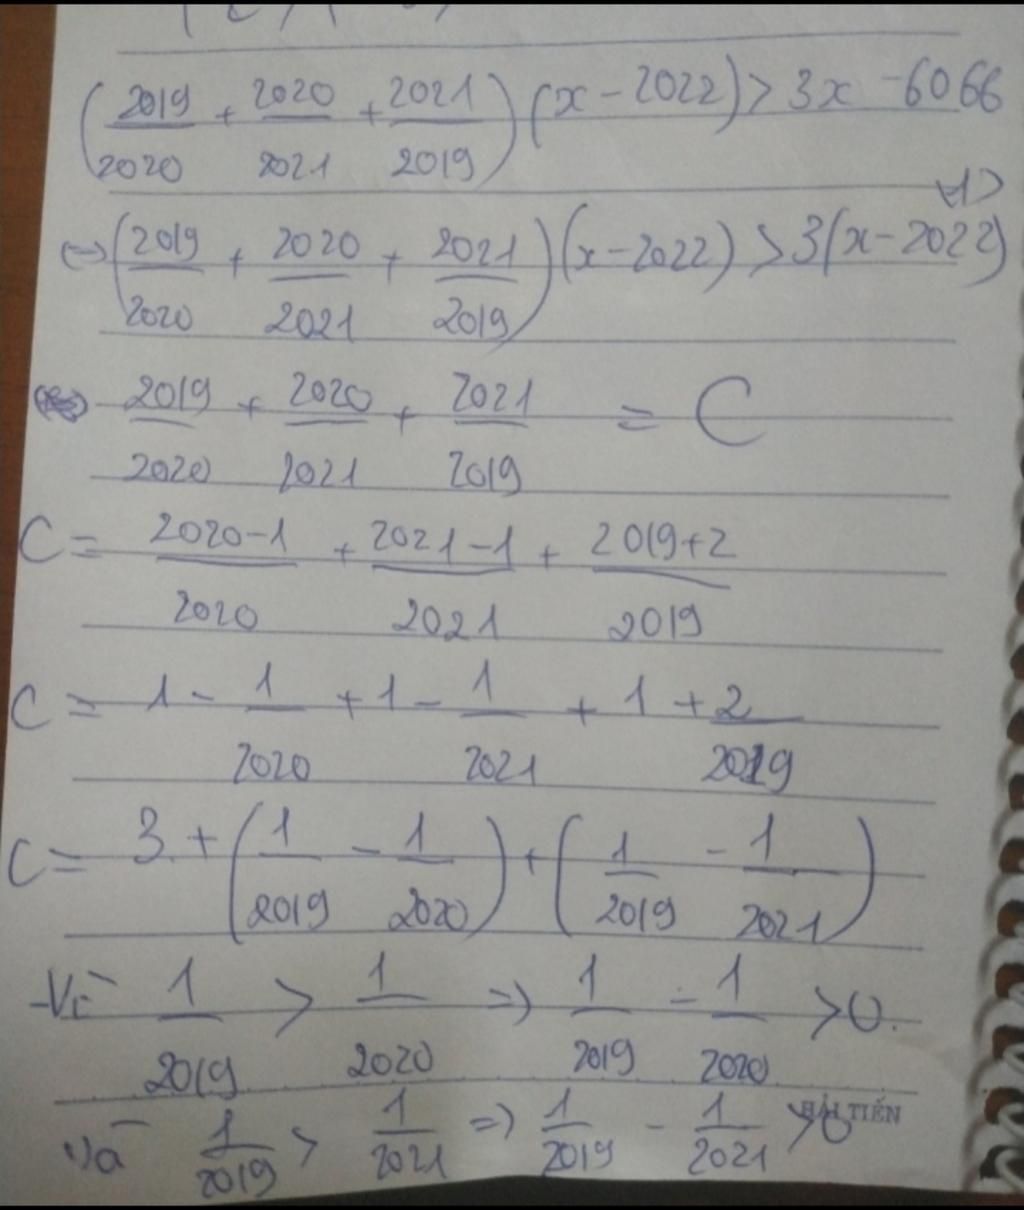 (2019/2020 + 2020/2021 + 2021/2019)(x - 2022) > 3x - 6066
<1>
<=> (2019/2020 + 2020/2021 + 2021/2019)(x - 2022) > 3(x - 2022)
2019/2020 + 2020/2021 + 2021/2019 = C
C = 2020-1/2020 + 2021-1/2021 + 2019+2/2019
C = 1 - 1/2020 + 1 - 1/2021 + 1 + 2/2019
C = 3 + (1/2019 - 1/2020) + (1/2019 - 1/2021)
-Vì 1/2019 > 1/2020 => 1/2019 - 1/2020 > 0.
và 1/2019 > 1/2021 => 1/2019 - 1/2021 > 0
HẢI TIẾN